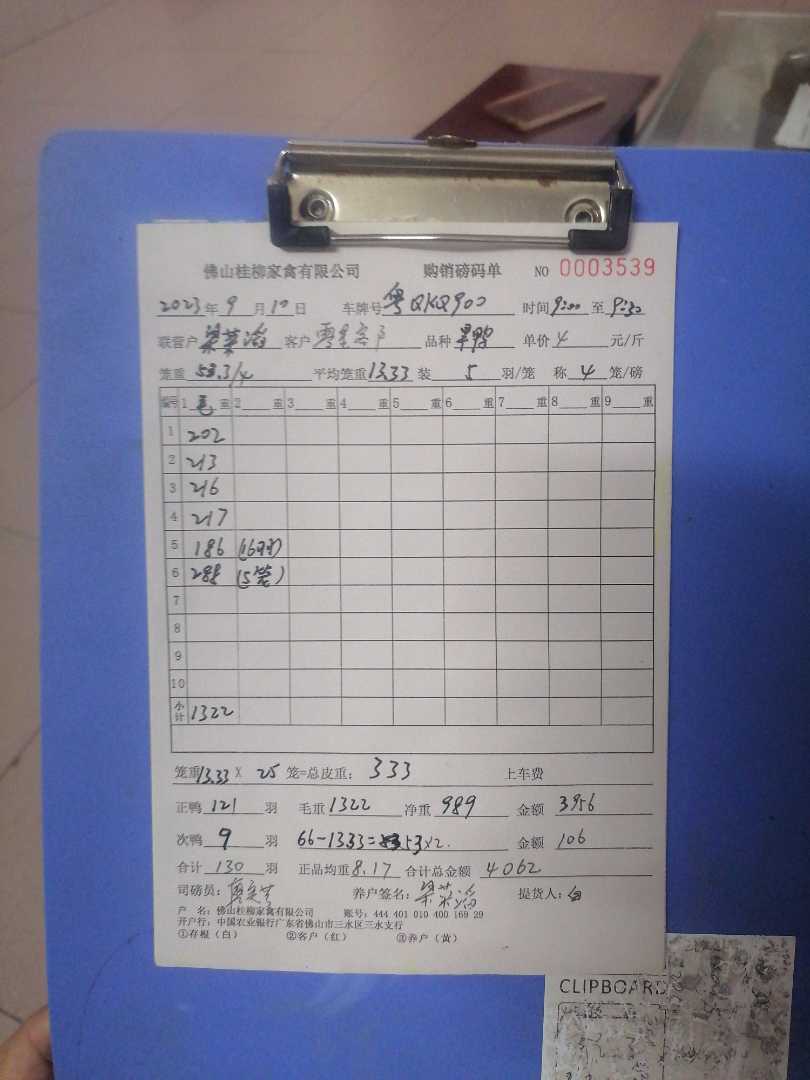 佛山桂柳家禽有限公司 购销磅码单 NO 0003539
2023年9月10日 车牌号粤QKQ900 时间9:00至9:30
联营户 客户零星客户 品种 单价4元/斤
笼重53.3/4 平均笼重13.33装5羽/笼 称4笼/磅
编号 1毛重 2重 3重 4重 5重 6重 7重 8重 9重
1 202
2 213
3 216
4 217
5 186 (16羽)
6 288 (5笼)
7
8
9
10
小计 1322
笼重13.33 X 25笼=总皮重:333 上车费
正鸭121羽 毛重1322 净重989 金额3956
次鸭9羽 66-13.33=53×2. 金额106
合计130羽 正品均重8.17 合计总金额4062
司磅员: 养户签名: 提货人:
户 名:佛山桂柳家禽有限公司 账号:444 401 010 400 169 29
开户行:中国农业银行广东省佛山市三水区三水支行
①存根(白) ②客户(红) ③养户(黄)
CLIPBOARD